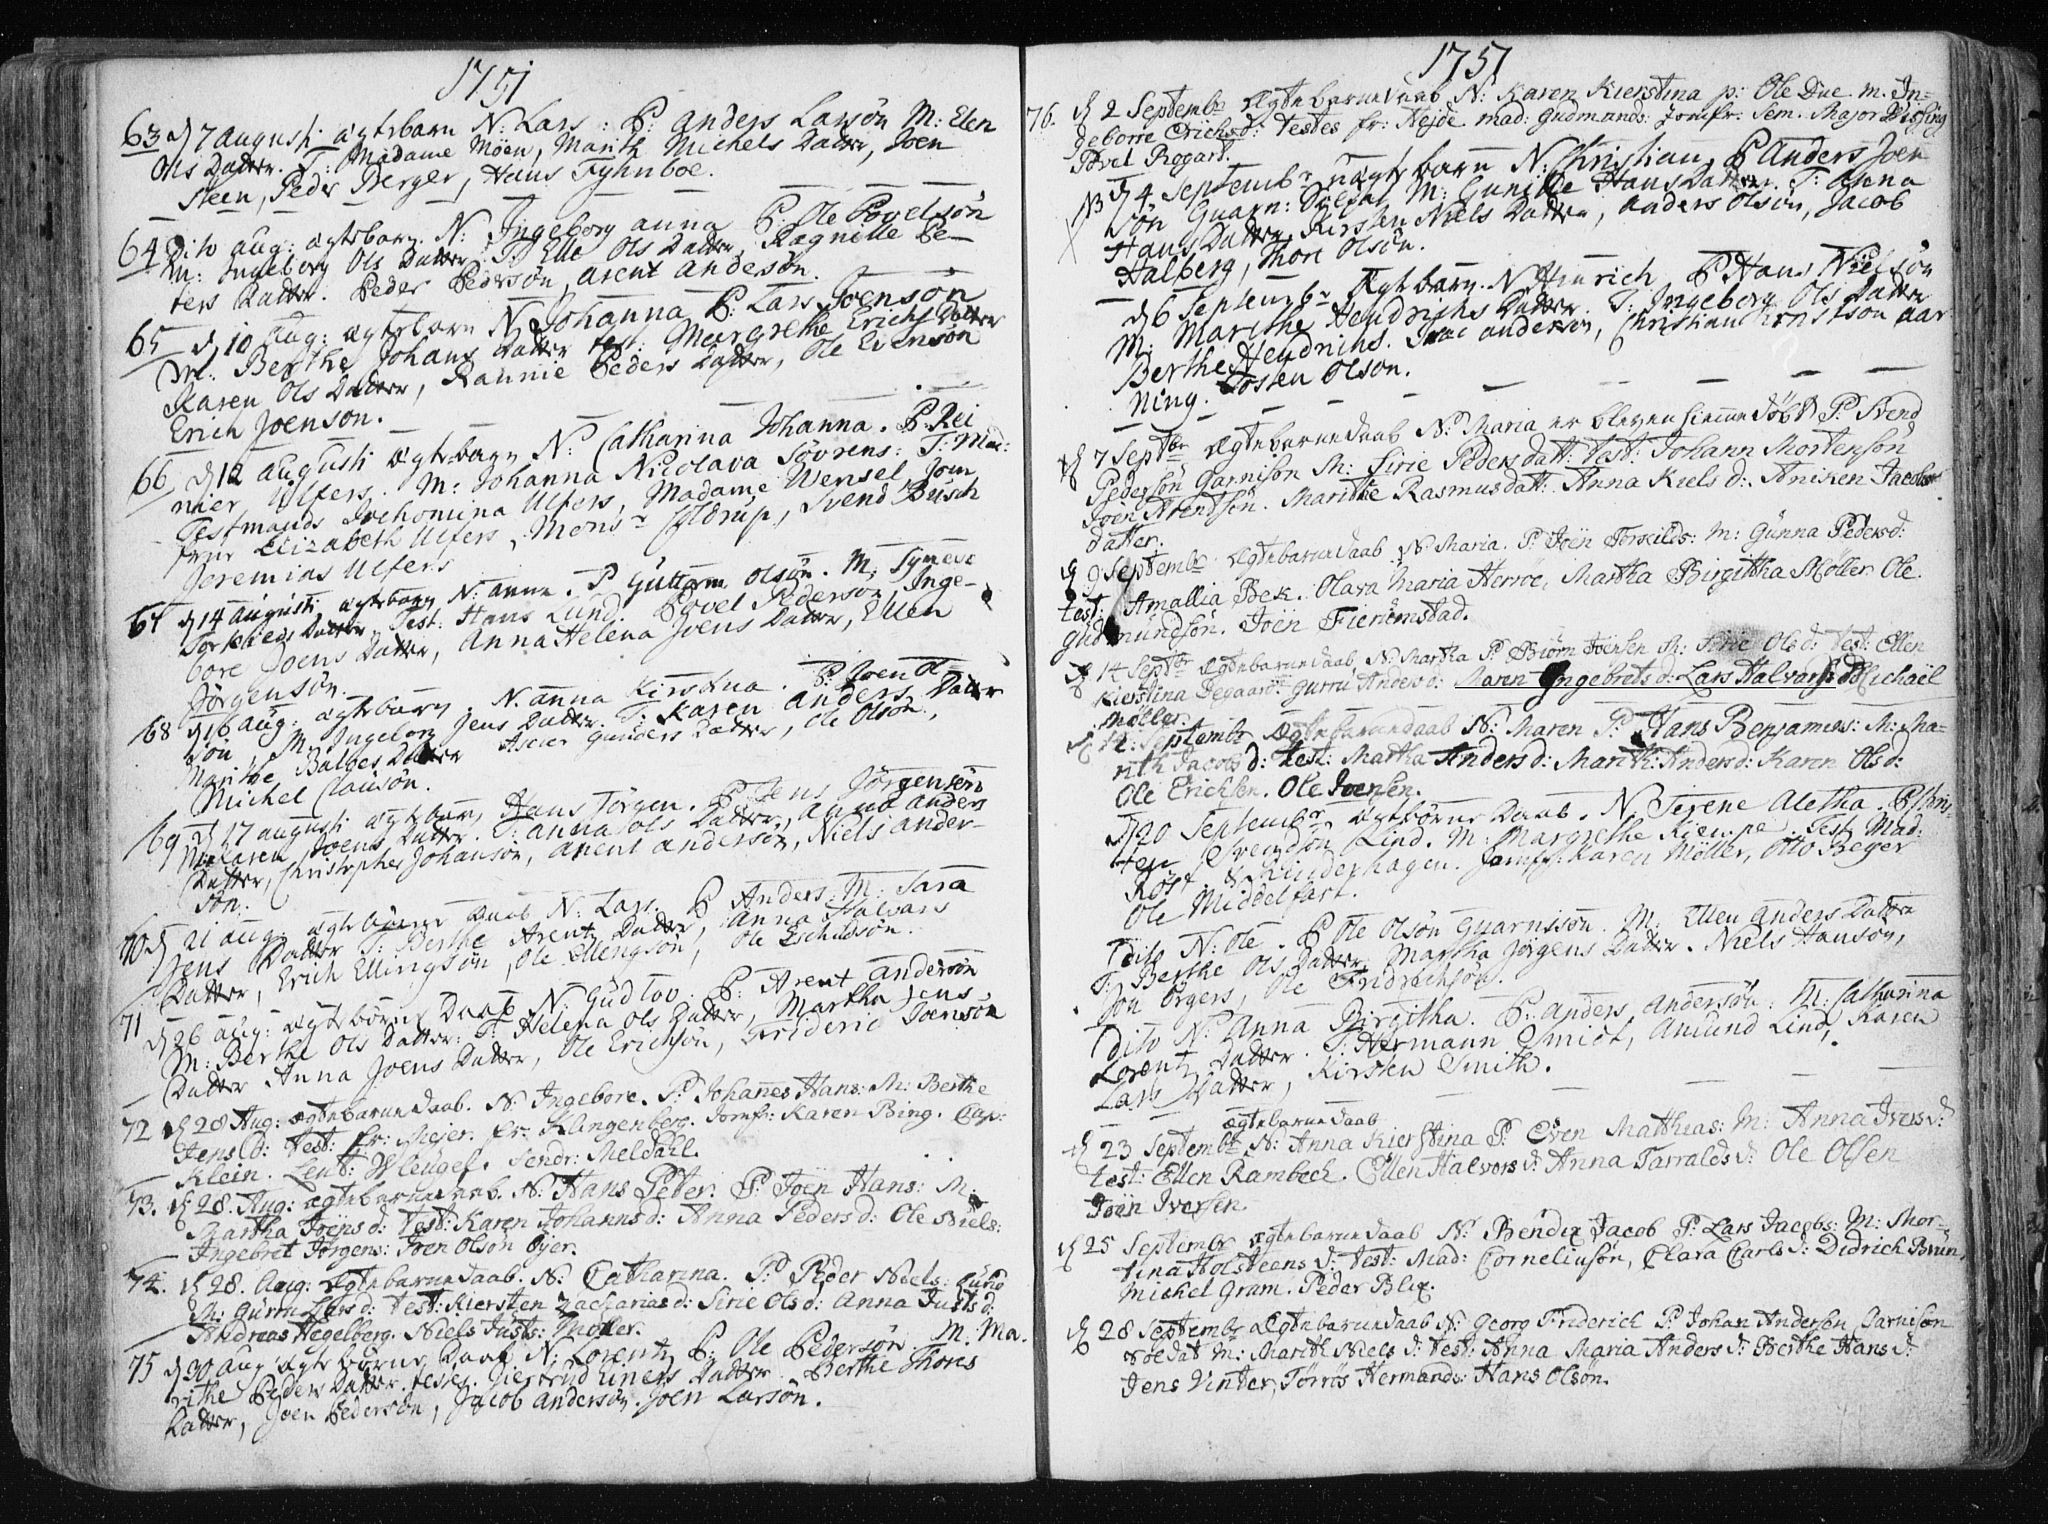 1751
63 d 7 augusti ægtebarn N: Lars. P: Anders Larsøn M: Elen
Ols Datter. T: Madame Möen, Marith Michels Datter, Joen
Steen, Peder Berger, Hans Fyhnboe.
64 Dito aug: ægtebarn. N: Ingeborg anna P: Ole Povelsøn
M: Ingeborg Ols Datter. T: Elle Ols Datter, Ragnille Pe-
ters Datter. Peder Pedersøn, arent Andersøn.
65 d 10 Aug: ægtebarn N: Johanna P: Lars Joensøn
M: Berthe Johans Datter test: Margrethe Erichs Datter
Karen Ols Datter, Rannie Peders Datter, Ole Evensøn
Erich Joensøn.
66 d 12 augusti ægtebarn N: Catharina Johanna. P: Rei
nier Ulfers. M: Johanna Nicolava Sövrens: T: Mad:
Testmands Jochomina Ulfers, Madame Wensel, Jom
frue Elizabeth Ulfers, Mons: Coldrup, Svend Busch
Jeremias Ulfers
67 d 14 augusti ægtebarn N: anne. P Guttorm Olsøn. M: Synneve
Torkields Datter, Test: Hans Lund, Povel Pederson, Inge-
bore Joens Datter, Anna Helena Joens Datter, Ellen
Jørgensøn.
68 d 16 aug: ægtebarn. N: anna Kirstina. P: Joen A
søn, M: Ingeborg Jens Datter. T: Karen Anders Datter
Marithe Balzes Datter Gunders Datter, Ole Olsøn,
Michel Clausøn.
69 d 17 augusti ægtebarn Hans Jörgen. P: Jens Jørgensøn
M: Karen Joens Datter. T: anna Ols Datter, anna anders
Datter, Christopher Johansøn, arent andersøn, Niels ander-
søn.
70 d 21 aug: ægtebørne Daab N: Lars. P Anders: M: Sara
Jens Datter T: Berthe Arentz Datter, Anna Halvars
Datter, Erich Ellingsøn, Ole Ellengsøn, Ole Eschildsøn.
71 d 26 aug: ægtebørne Daab N: Gudlov. P: Arent andersøn
M: Berthe Ols Datter: T: Helena Ols Datter, Martha Jens
Datter Anna Joens Datter, Ole Erichsøn, Frideric Joensøn
72 d 28 Aug: ægtebarnedaab. N: Ingebore. P: Johanes Hans: M: Berthe
Jens d: test: fr: Meier. fr: Klingenberg. Jomfr: Karen Bing. Cap:
Klein. Leut: Wleugel. Sendr: Meldahl.
73. d 28. Aug: ægtebarnedaab. N: Hans Peter. P: Joen Hans: M:
Martha Joens d: test: Karen Johanns d: Anna Peders d: Ole Niels:
Ingebret Jørgens: Joen Olsøn Øjer.
74. d 28. Aug: ægtebarnedaab. N: Catharina. P: Peder Niels: Lund
M: Guru Lars d: test: Kiersten Zacharias d: Sirie Ols d: Anna Justs d:
Andreas Hegelberg. Niels Justs: Møller.
75 d 30 aug ægtebørne Daab N: Lorentz P: Ole Pedersøn M: Ma.
rithe Peders Datter, testes, Giertrud Einers Datter. Berthe Thores
Datter, Joen Pedersøn, Jacob andersøn. Joen Larsøn.
1751
76. d 2 Septembr Ægtebarnedaab N: Karen Kierstina p: Ole Due. m. In-
geborre Erichs d: testes fr: Hejde mad: Gudmunds: Jomfr: Sem. Major Bissing
Povel Rogart.
NB d 4 Septembr uægtebarn N: Christian, P Anders Joen
søn Guarn: Soldat M: Gunille Hans Datter. T: Anna
Hans Datter, Kirsten Niels Datter, anders Olsøn, Jacob
Halberg, Thore Olsøn.
d 6 Septembr Ægtebarn. N: Hinrich P Hans Nielsøn
M: Marithe Hendrichs Datter. T: Ingeborg Ols Datter
Berthe Hendrichs. Isac andersøn, Christian Ernstsøn aar
ning. Tosten Olson.
d 7 Septbr Ægtebarnedaab N: Maria er bleven hiemmedøbt P: Svend
Pedersøn Garnison M: Sirie Peders datt: test: Johann Mortensøn
Joen Arendsøn. Marithe Rasmusdatt: Anna Kiels d: Aniken Jacobs
datter.
d 9 Septembr Ægtebarnedaab N: Maria. P: Joën Torkilds: M: Gunna Peders d:
test: Amallia Bek. Olava Maria Herröe, Martha Birgitha Møller. Ole
Gudmundsøn. Joën Fieremstad.
d 14 Septbr Ægtebarnedaab, N: Martha P: Biørn Joensen M: Sirie Ols d: test: Ellen
Kierstina Degaard: Gurru Anders d: Maren Ingebrets d: Lars Halvars: Michaël
Møller.
d 17. Septembr Ægtebarnedaab N: Maren P: Hans Benjamins: M: Ma-
rith Jacobs d: test: Martha Anders d: Marith: Anders d: Karen Ols d:
Ole Erichsen. Ole Joensen.
d 20 Septembr, Ægtebørne Daab. N Serene Aletha. P Chris-
ten Svendsøn Lind. M: Margrethe Kiempe. Test Mad:
Røst. & Kindephagen. Jomfr: Karen Möller, Otto Beyer
Ole Middelfart.
Dito N: Ole. P Ole Olsøn Guarnison. M: Ellen Anders Datter
T: Berthe Ols Datter, Martha Jörgens Datter. Niels Hansøn,
Jon Örgers, Ole Fridrichsøn.
Dito N: Anna Birgitha. P: anders Andersøn: M: Catharina
Lorentz Datter. T: Hermann Smidt, Amund Lind, Karen
Lars Datter, Kirsten Smith.
ægtebarnedaab
d 23 Septembr N: Anna Kierstina P: Even Matthias: M: Anna Ivers d:
test: Ellen Rambech. Ellen Halvors d: Anna Tarralds d: Ole Olsen
Joën Iversen.
d 25 Septembr ægtebarnedaab N: Bendix Jacob P: Lars Jacobs: M: Mor-
tina Holsteens d: test: Mad: Corneliusøn, Clara Carls d: Didrich Brun,
Michel Gram. Peder Blix.
d 28 Septembr Ægtebarnedaab N: Georg Friderich P: Johan Andersøn Garnison
Soldat M: Marith Niels d: test: Anna Maria Anders d: Berthe Hans d:
Jens Vinter, Törrös Hermands: Hans Olsøn.